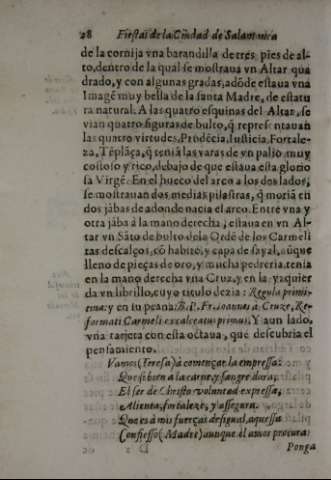 28 Fiestas de la Ciudad de Salamanca
de la cornija vna barandilla de tres pies de al-
to, dentro de la qual se mostraua vn Altar qua
drado, y con algunas gradas, adõde estaua vna
Imagẽ muy bella de la santa Madre, de estatu
ra natural. A las quatro esquinas del Altar, se
vian quatro figuras de bulto, q̃ represẽtauan
las quatro virtudes, Prudẽcia, Iusticia, Fortale-
za, Tẽplãça, q̃ teniã las varas de vn palio muy
costoso y rico, debajo de que estaua esta glorio
sa Virgẽ. En el hueco del arco a los dos lados,
se mostrauan dos medias pilastras, q̃ moriã en
dos jãbas de adonde nacia el arco. Entre vna y
otra jãba à la mano derecha, estaua en vn Al-
tar vn Sãto de bulto dela Ordẽ de los Carmeli
tas descalços, cõ habito, y capa de sayal, aũque
lleno de pieças de oro, y mucha pedreria, tenia
en la mano derecha vna Cruz, y en la yzquier
da vn librillo, cuyo titulo dezia: Regula primi-
tiua: y en su peana: B. P. Fr. Ioannes à Cruze, Re-
formati Carmeli excalceatus primus. Y a vn lado,
vna tarjeta con esta octaua, que descubria el
pensamiento.
Vamos (Teresa) à començar la empressa:
Que si bien a la carne, y sangre dura,
El ser de Christo voluntad expressa,
Alienta, fortaleze, y assegura.
Que es à mis fuerças desigual, aquessa
Confiesso (Madre) aunque el amor procura:
Ponga